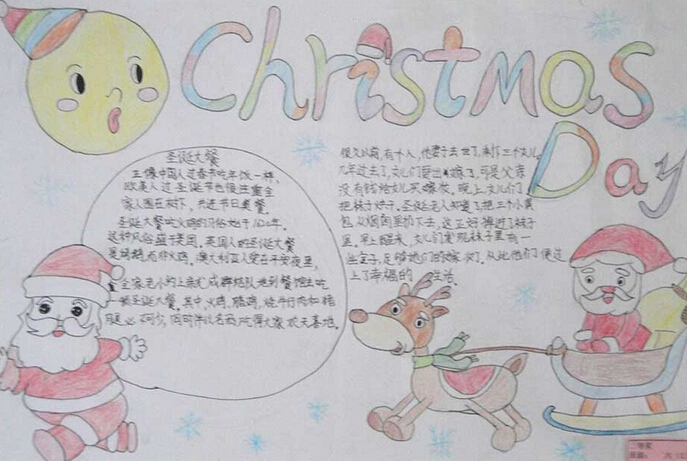 Christmas
Day
圣诞大餐
正像中国人过春节吃年饭一样,
欧美人过圣诞节也很注重全
家人围在树下,共进节日美餐。
圣诞大餐吃火鸡的习俗始于1620年。
这种风俗盛于美国。英国人的圣诞大餐
是烤鹅,而非火鸡。澳大利亚人爱在平安夜里,
全家老小约上亲友成群结队地到餐馆去吃
一顿圣诞大餐。其中,火鸡、腊鸡、烧牛仔肉和猪
腿必不可少,同时伴以名酒,吃得大家欢天喜地。
很久以前,有个人,他妻子去世了,剩下三个女儿。
几年过去了,女儿们要出嫁了,可是父亲
没有钱给女儿买嫁妆。晚上,女儿们
把袜子。圣诞老人知道了,把三个小
包从烟囱里扔下去,这正好掉进了袜子
里。早上醒来,女儿们发现袜子里有一
些金子,足够她们的嫁妆了。从此他们便过
上了幸福的生活。
二等奖